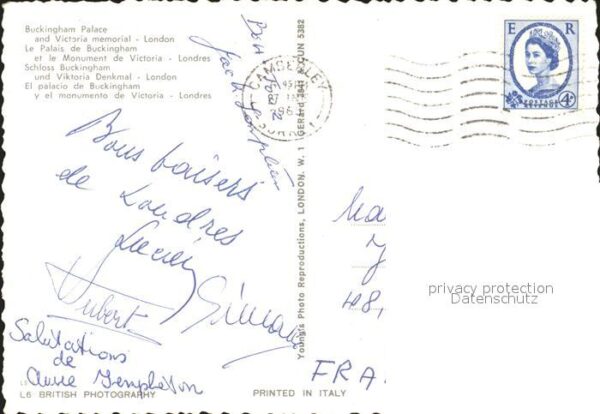 Buckingham Palace
and Victoria memorial - London
Le Palais de Buckingham
et le Monument de Victoria - Londres
Schloss Buckingham
und Viktoria Denkmal - London
El palacio de Buckingham
y el monumento de Victoria - Londres
Jack Templeton
CAMBERLEY
SURREY
E R
POSTAGE REVENUE
4D
Bons baisers
de Londres
Lucien
Hubert
Salutations
de
Anne Templeton
L6 BRITISH PHOTOGRAPHY
PRINTED IN ITALY
Young's Photo Reproductions, LONDON. W. 1 GERard 2941 HUN 5382
Ma
J
108,
FRA.
privacy protection
Datenschutz